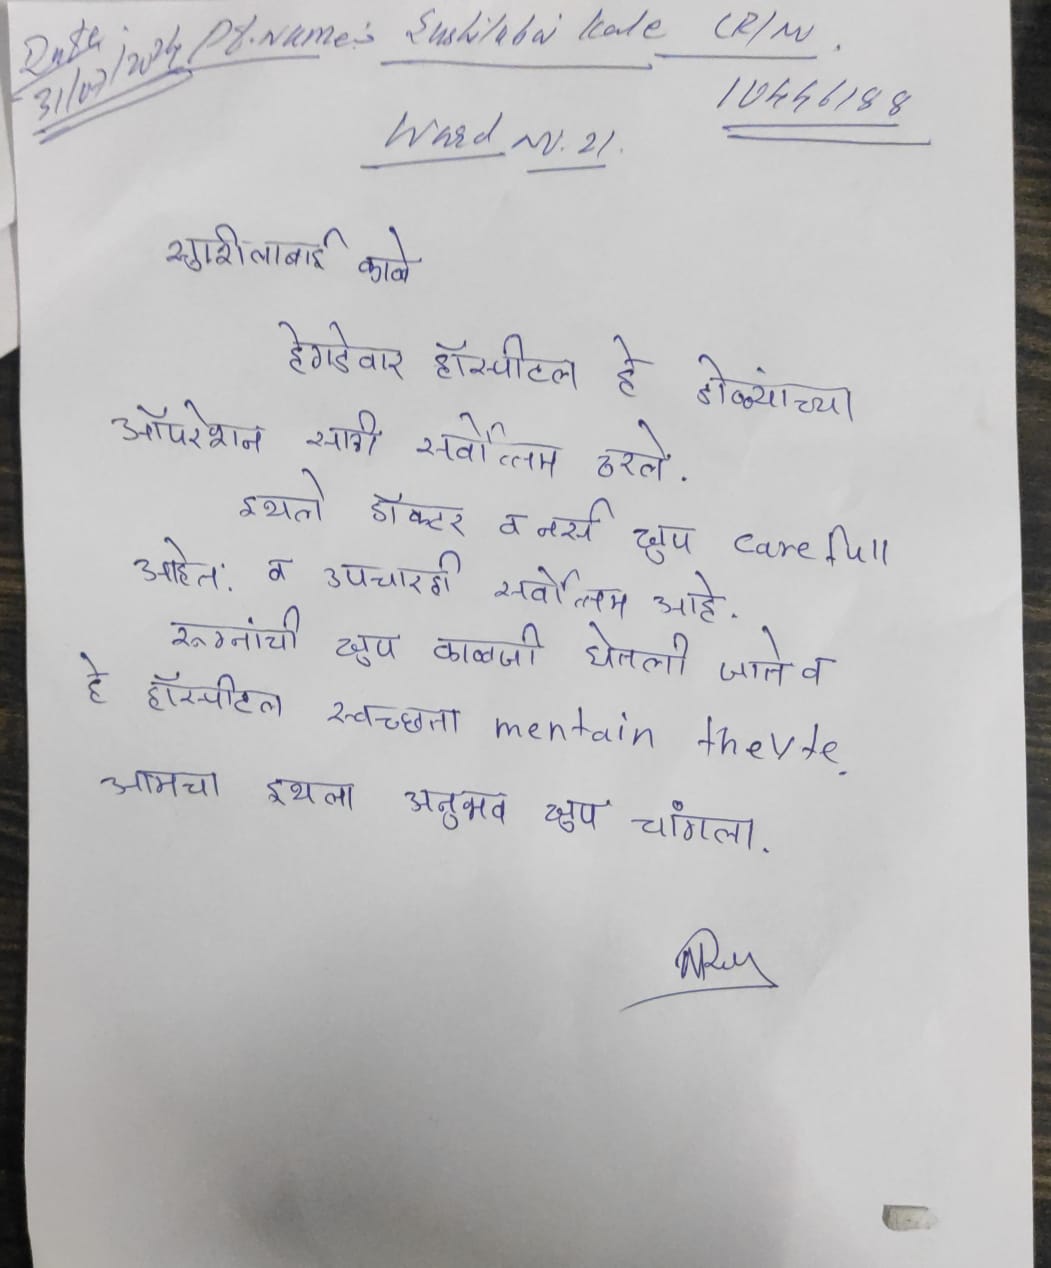 Date: Pt. Name:- Sushilabai Kale CR/N.
31/07/2024 10446188
Ward No. 21.
सुशीलाबाई काळे
हेगडेवार हॉस्पीटल हे डोळ्यांच्या
ऑपरेशन साठी सर्वोत्तम ठरले.
इथले डॉक्टर व नर्स खुप carefull
आहेत. व उपचारही सर्वोत्तम आहे.
रूग्नांची खुप काळजी घेतली जाते व
हे हॉस्पीटल स्वच्छता mentain thevte.
आमचा इथला अनुभव खुप चांगला.